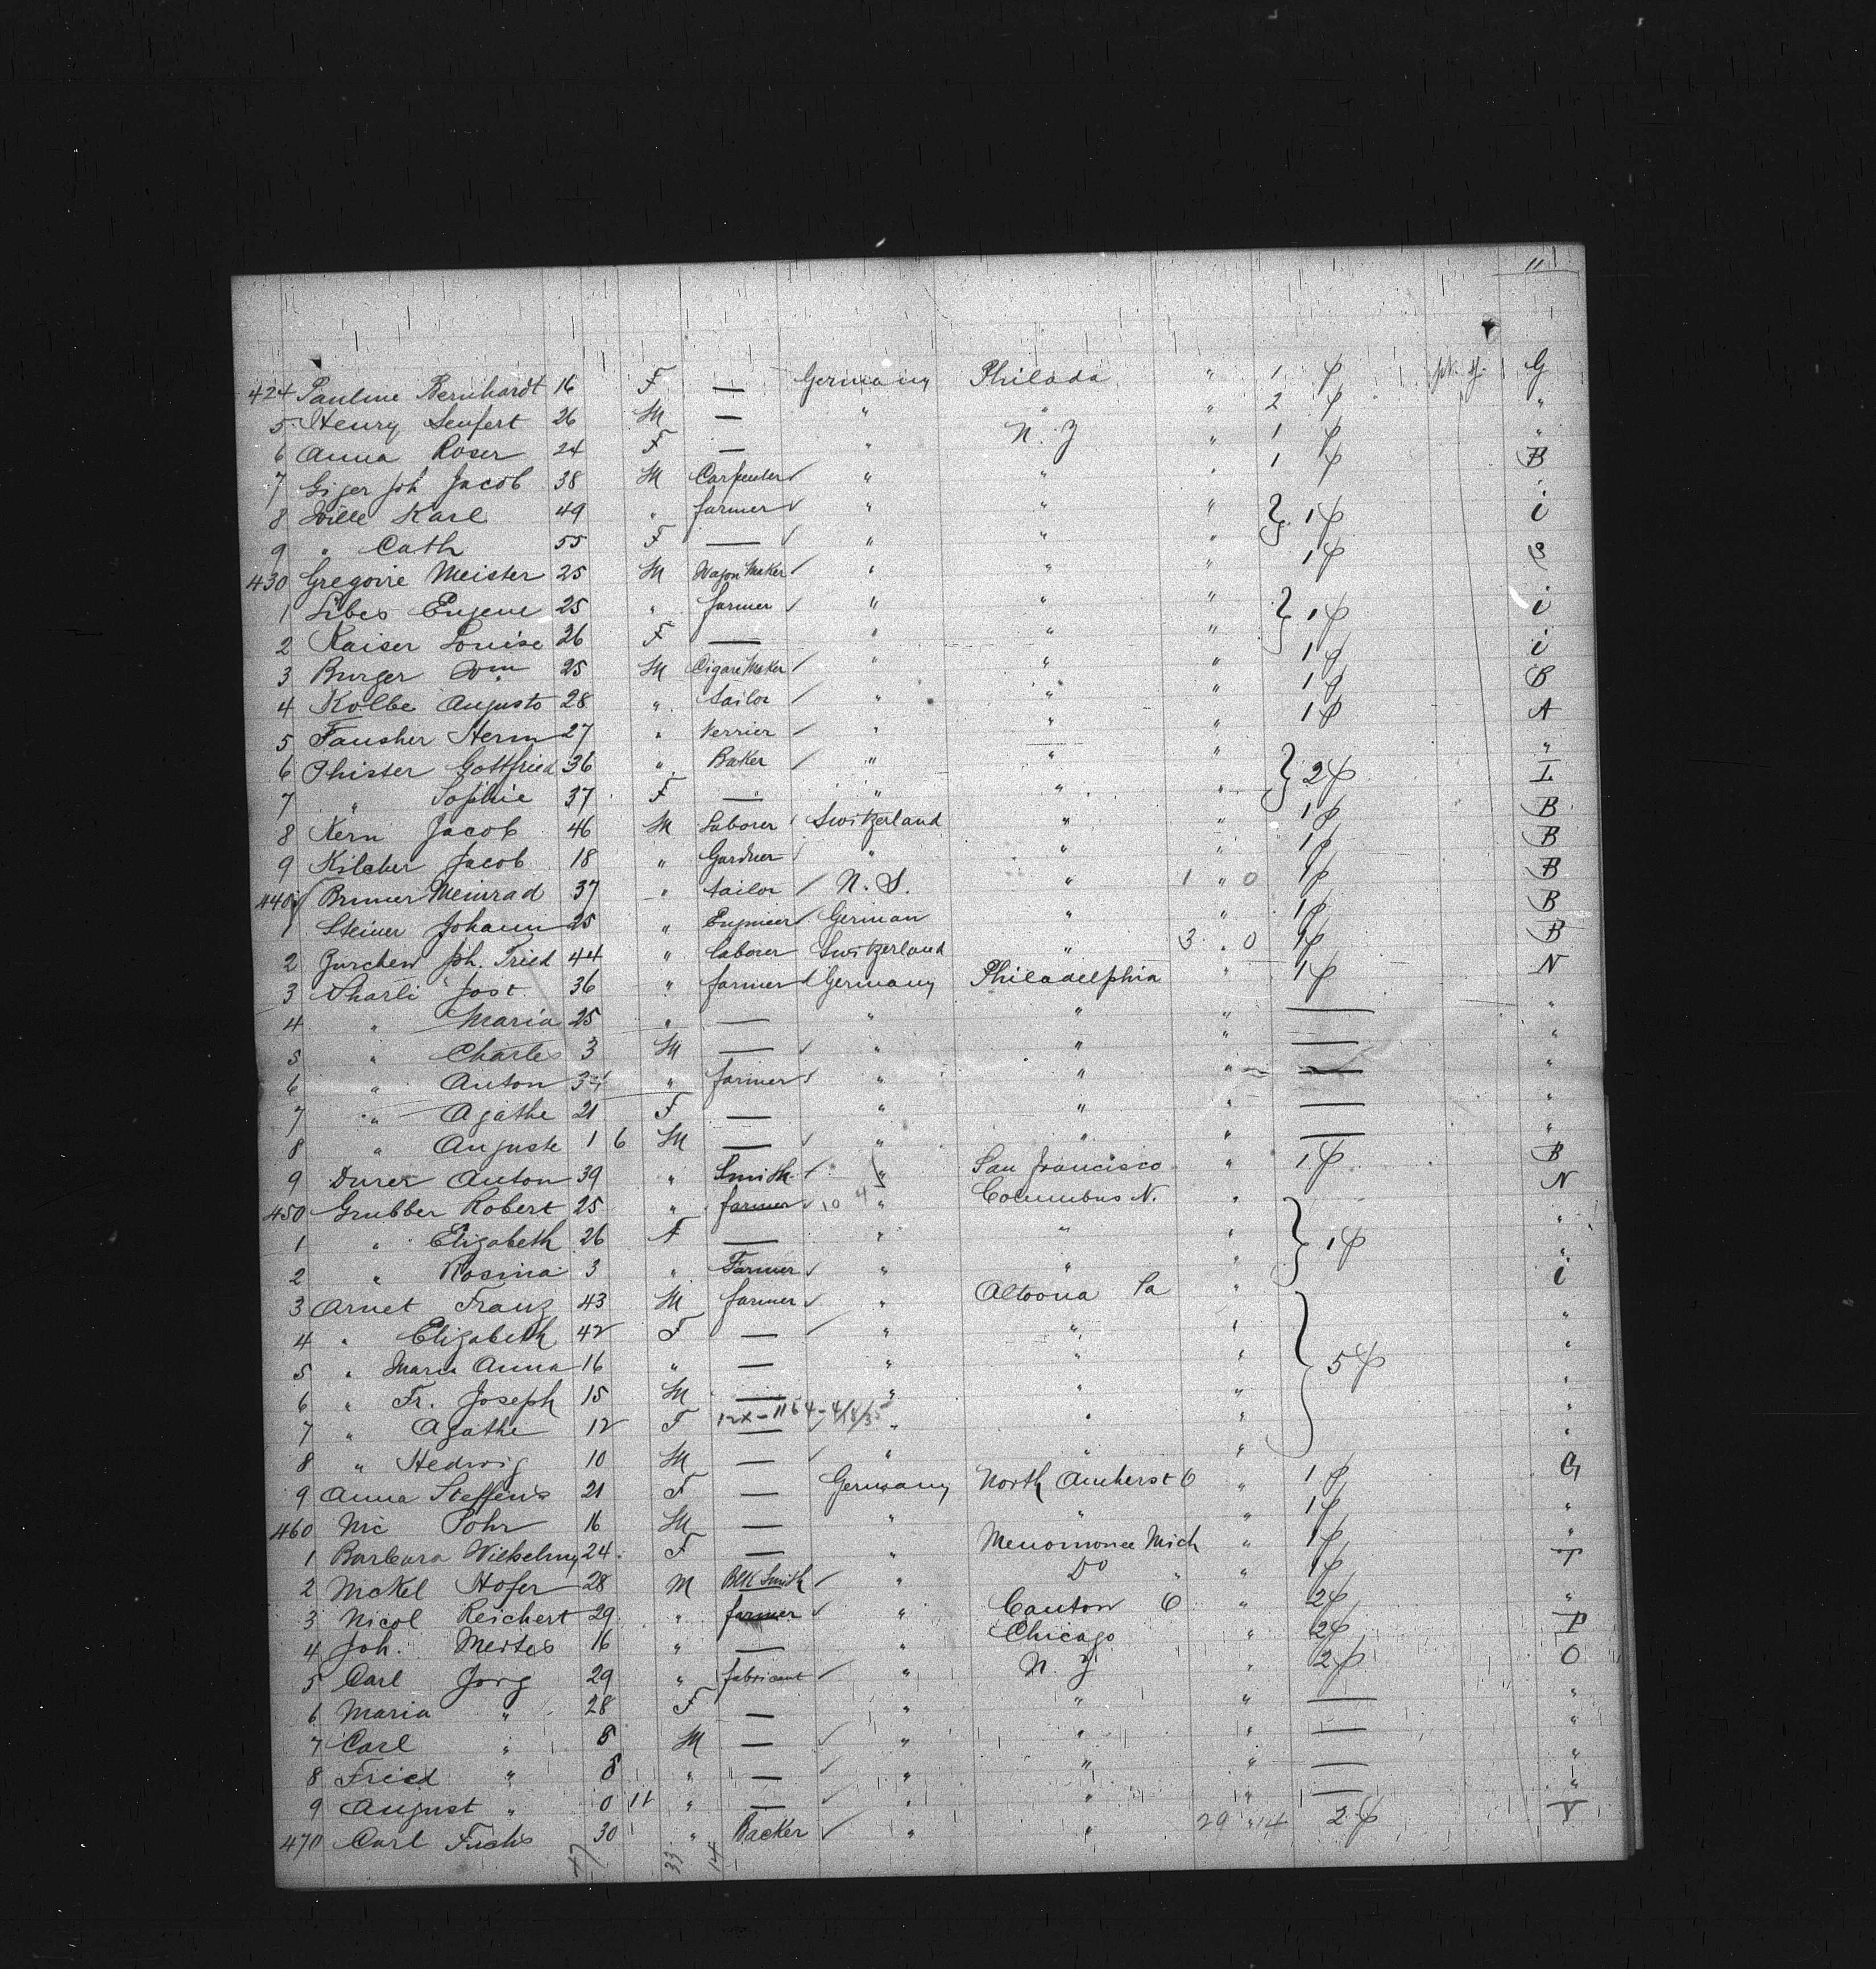 11
424 Pauline Bernhardt 16 F — Germany Philada " 1 ɸ G
5 Henry Seufert 26 M — " " " 2 ɸ "
6 Anna Roser 24 F — " N. Y " 1 ɸ "
7 Giger Joh Jacob 38 M Carpenter ✓ " " " 1 ɸ B
8 Wille Karl 49 " farmer ✓ " " " } 1 ɸ i
9 " Cath 55 F — ✓ " " "
430 Gregoire Meister 25 M Wagon Maker ✓ " " " 1 ɸ S
1 Libes Eugene 25 " farmer ✓ " " " } 1 ɸ i
2 Kaiser Louise 26 F — " " " i
3 Burger Wm 25 M Cigare Maker ✓ " " " 1 ɸ
4 Kolbe Augusto 28 " tailor ✓ " " " 1 ɸ B
5 Fausher Herm 27 " Verrier ✓ " " " 1 ɸ A
6 Phister Gottfried 36 " Baker ✓ " " " } 2 ɸ "
7 " Sophie 37 F — " " " I
8 Kern Jacob 46 M Laborer ✓ Switzerland " " 1 ɸ B
9 Kilcher Jacob 18 " Gardner ✓ " " " 1 ɸ B
440 Brunner Meinrad 37 " tailor ✓ N. S. " 1 " 0 1 ɸ B
1 Steiner Johann 25 " Engineer ✓ German " " 1 ɸ B
2 Zurchew Joh. Fried 44 " laborer Switzerland " 3 " 0 1 ɸ B
3 Jost 36 " farmer ✓ Germany Philadelphia " 1 ɸ N
4 " Maria 25 " — " " " — "
5 " Charles 3 M — ✓ " " " — "
6 " Anton 34 " farmer ✓ " " " — "
7 " Agathe 21 F — " " " — "
8 " Auguste 1 6 M — ✓ " " " — "
9 Durer Anton 39 " Smith ✓ " San Francisco " 1 ɸ B
450 Grubber Robert 25 " farmer ✓ 10 4 " Columbus N. " N
1 " Elizabeth 26 F — " " " } 1 ɸ "
2 " Rosina 3 " Farmer ✓ " " " "
3 Arnet Franz 43 M farmer ✓ " Altoona Pa " i
4 " Elizabeth 42 F — ✓ " " " "
5 " Maria Anna 16 " — " " " } 5 ɸ "
6 " Fr. Joseph 15 M — " " " "
7 " Agathe 12 F — ✓ " " " "
8 " Hedwig 10 M — ✓ " " " "
9 Anna Steffens 21 F — Germany North Amherst O " 1 ɸ G
460 Nic Pohr 16 M — " " " 1 ɸ "
1 Barbara Wilhelmy 24 F — " Menomonee Mich " 1 ɸ "
2 Nickel Hofer 28 M Blk Smith ✓ " Do " " 1 ɸ T
3 Nicol Reichert 29 " farmer ✓ " Canton O " 2 ɸ "
4 Joh. Mertes 16 " — " Chicago " 2 ɸ P
5 Carl Jorg 29 " fabricant ✓ " N. Y " 2 ɸ O
6 Maria " 28 F — " " " — "
7 Carl " 8 M — ✓ " " " — "
8 Fried " 8 " — ✓ " " " — "
9 August " 0 11 " — ✓ " " " — "
470 Carl Fuchs 30 " Backer ✓ " " 29 " 14 2 ɸ V
47 33 14